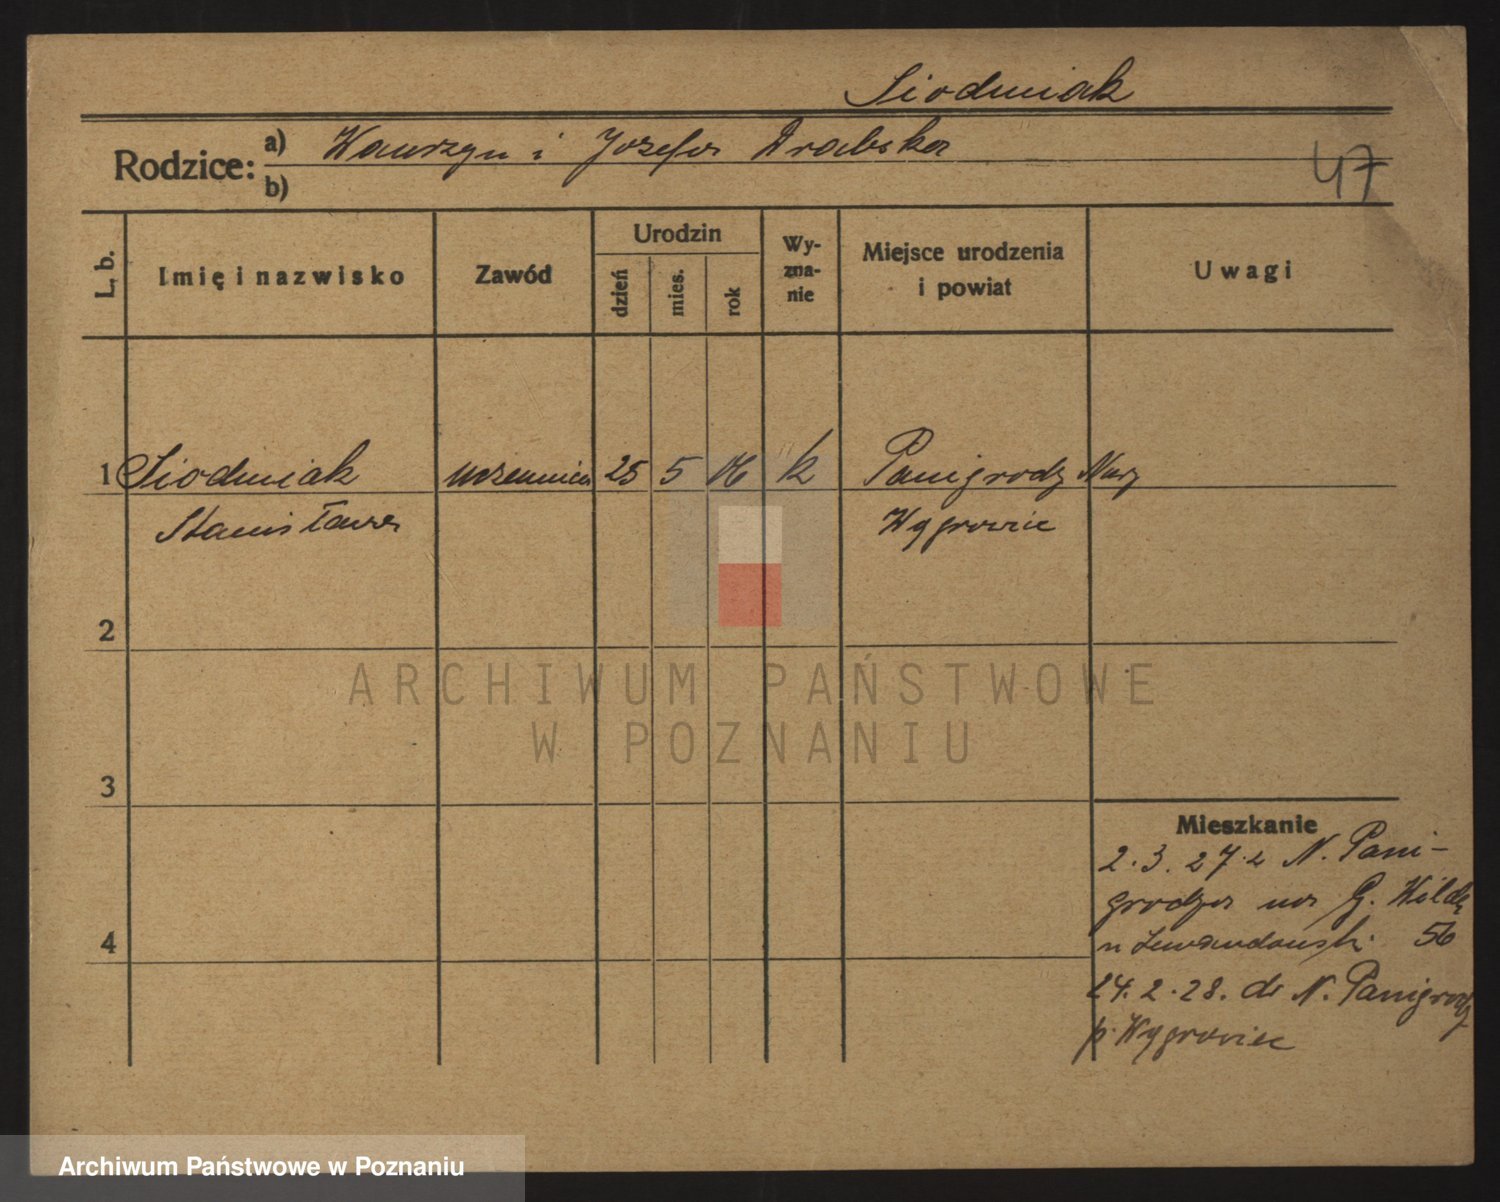 Siodmiak
Rodzice: a) Wawrzyn i Józefa Drabska
b)
47
L. b.
Imię i nazwisko
Zawód
Urodzin
dzień
mies.
rok
Wy-
zna-
nie
Miejsce urodzenia
i powiat
Uwagi
1 Siodmiak uczennica 25 5 06 k Panigrodz Now
Stanisława Wągrowiec
2
3
4
Mieszkanie
2.3.27 z N. Pani-
grodza na G. Wildę
u Lewandowsk. 56
24.2.28. do N. Panigrodz
p. Wągrowiec
ARCHIWUM PAŃSTWOWE
W POZNANIU
Archiwum Państwowe w Poznaniu